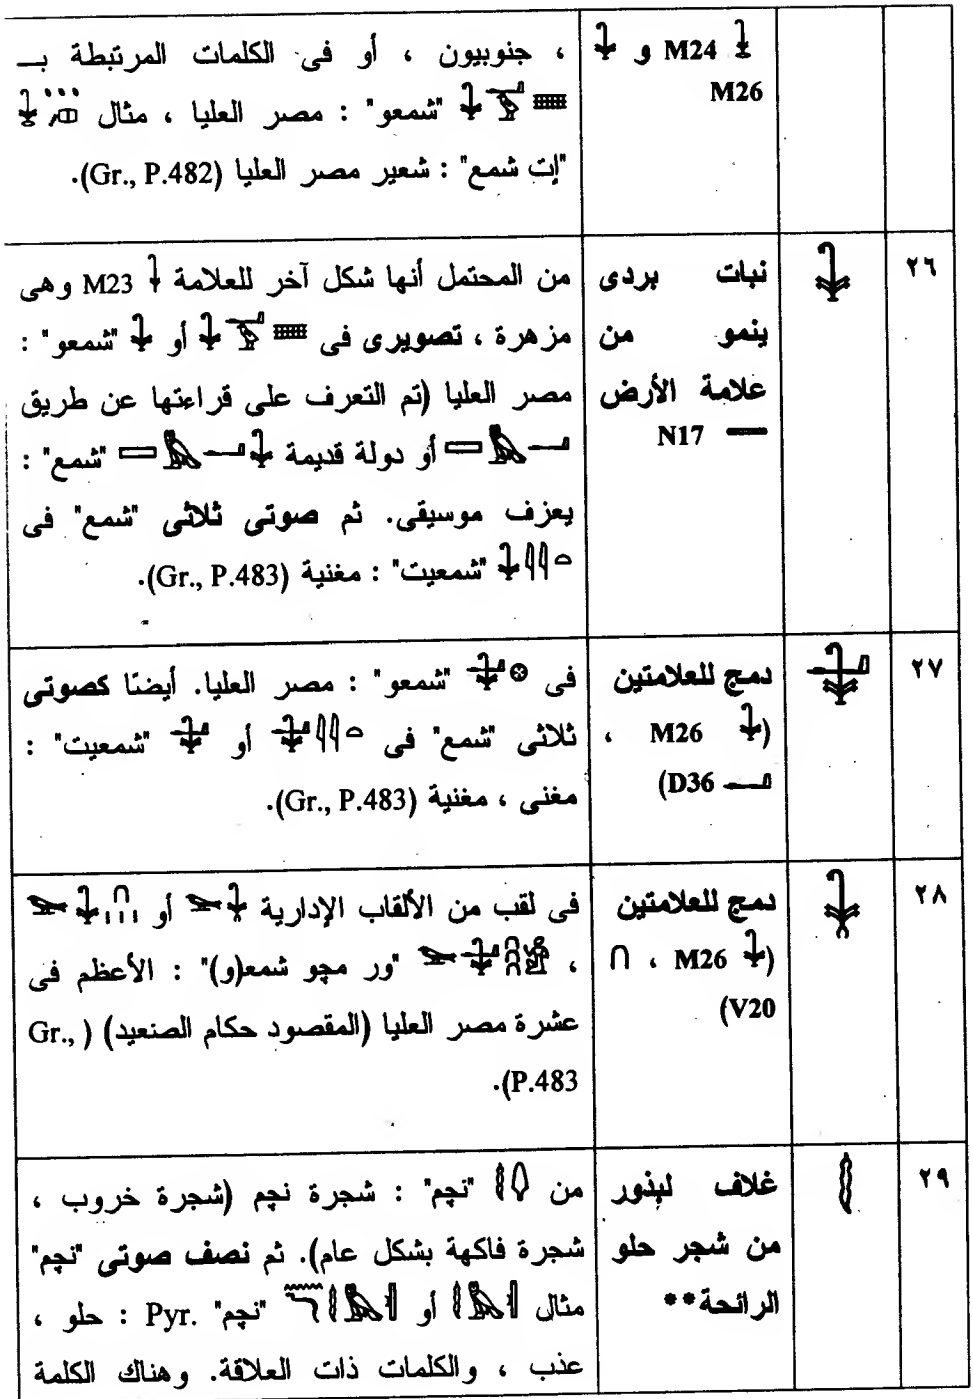 M24 و
M26
، جنوبيون ، أو فى الكلمات المرتبطة بـ
"شمعو" : مصر العليا ، مثال
"إت شمع" : شعير مصر العليا (Gr., P.482).
٢٦
نبات بردى
ينمو من
علامة الأرض
N17
من المحتمل أنها شكل آخر للعلامة M23 وهى
مزهرة ، تصويرى فى أو "شمعو" :
مصر العليا (تم التعرف على قراءتها عن طريق
أو دولة قديمة "شمع" :
يعزف موسيقى. ثم صوتى ثلاثى "شمع" فى
"شمعيت" : مغنية (Gr., P.483).
٢٧
دمج للعلامتين
(M26 ،
D36)
فى "شمعو" : مصر العليا. أيضًا كصوتى
ثلاثى "شمع" فى أو "شمعيت" :
مغنى ، مغنية (Gr., P.483).
٢٨
دمج للعلامتين
(M26 ،
V20)
فى لقب من الألقاب الإدارية أو
، "ور مچو شمع(و)" : الأعظم فى
عشرة مصر العليا (المقصود حكام الصعيد) (Gr.,
P.483).
٢٩
غلاف لبذور
من شجر حلو
الرائحة**
من "نچم" : شجرة نچم (شجرة خروب ،
شجرة فاكهة بشكل عام). ثم نصف صوتى "نچم"
مثال أو "نچم" Pyr. : حلو ،
عذب ، والكلمات ذات العلاقة. وهناك الكلمة